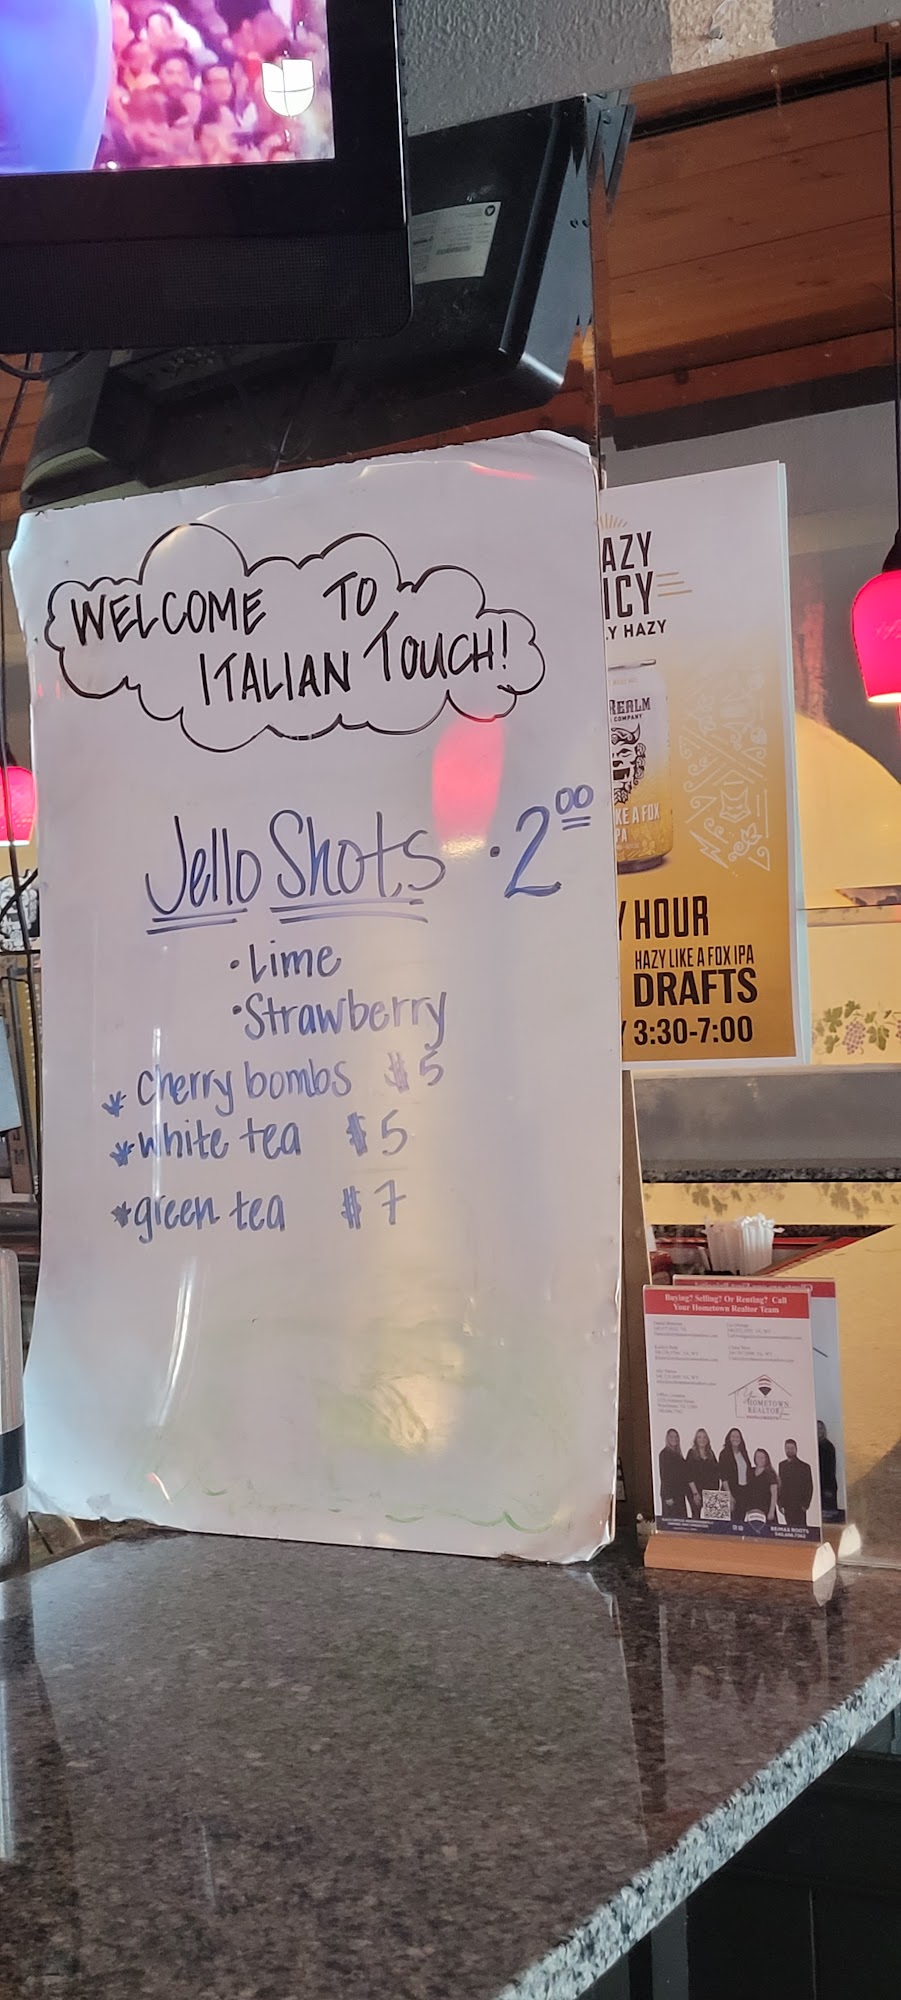 WELCOME TO
ITALIAN TOUCH!
Jello Shots · 2.00
• Lime
• Strawberry
* Cherry bombs $5
* white tea $5
* green tea $7
AZY
ICY
Y HAZY
REALM
COMPANY
KE A FOX
PA
Y HOUR
HAZY LIKE A FOX IPA
DRAFTS
Y 3:30-7:00
Buying? Selling? Or Renting? Call
Your Hometown Realtor Team
Your
HOMETOWN
REALTOR
RE/MAX ROOTS